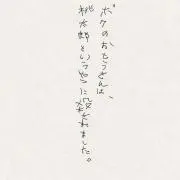 ボクのおとうさんは、
桃太郎というやつに殺されました。